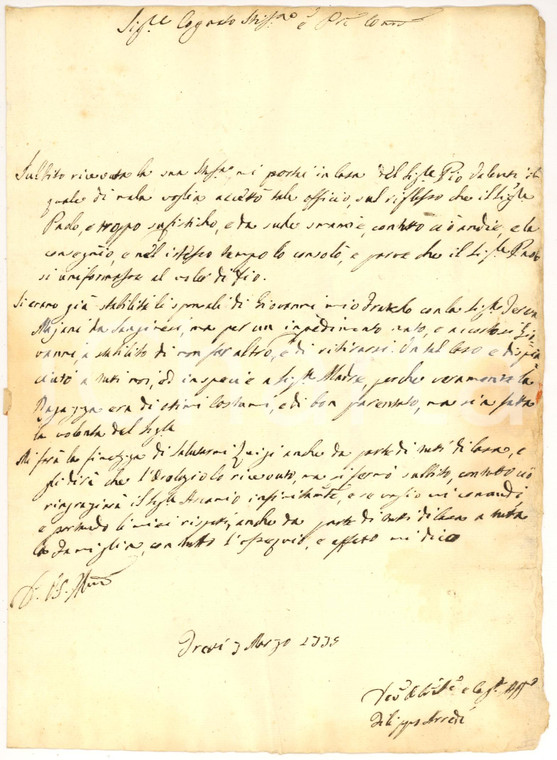 Sig.re Cognato Stiss.mo e
Subbito ricevuta la sua Stiss.ma mi portai in casa del Sig.re Pio Valenti il
quale di mala voglia accettò tale officio, sul riflesso che il Sig.re
Paolo, è troppo sofisticho, e da sue smanie, contutto ciò andiè, e la
consegniò, e nell'istesso tempo lo consolò, e parve che il Sig.re Paolo
si uniformasse al voler di Dio.
Si erano già stabiliti li sponsali di Giovanni mio Fratello con la Sig.ra Teresa
da, ma per un impedimento nato, e Gio-
vanni a stabilito di non far altro, e di ritirarsi. Un tal caso è dispia-
ciuto a tutti noi, ed in specie a Sig.ra Madre, perche veramente la
Ragazza era di ottimi costumi, e di bon parentato, ma sia fatta
la volontà del Sig.re
Mi farà la finezza di salutarmi anche da parte di tutti di casa, e
gli dirà che l'orologio lo ricevuto, ma si fermò subbito, contutto ciò
ringraziarà il Sig.re Ascanio infinitamente, e se voglio mi comandi,
e portando li miei rispetti, anche da parte di tutti di casa a tutta
la Famiglia, con tutto l'ossequio, e affetto mi dico
D. V.S. Ill.ma
Trevi 3 Marzo 1775
Dev.mo
Filippo